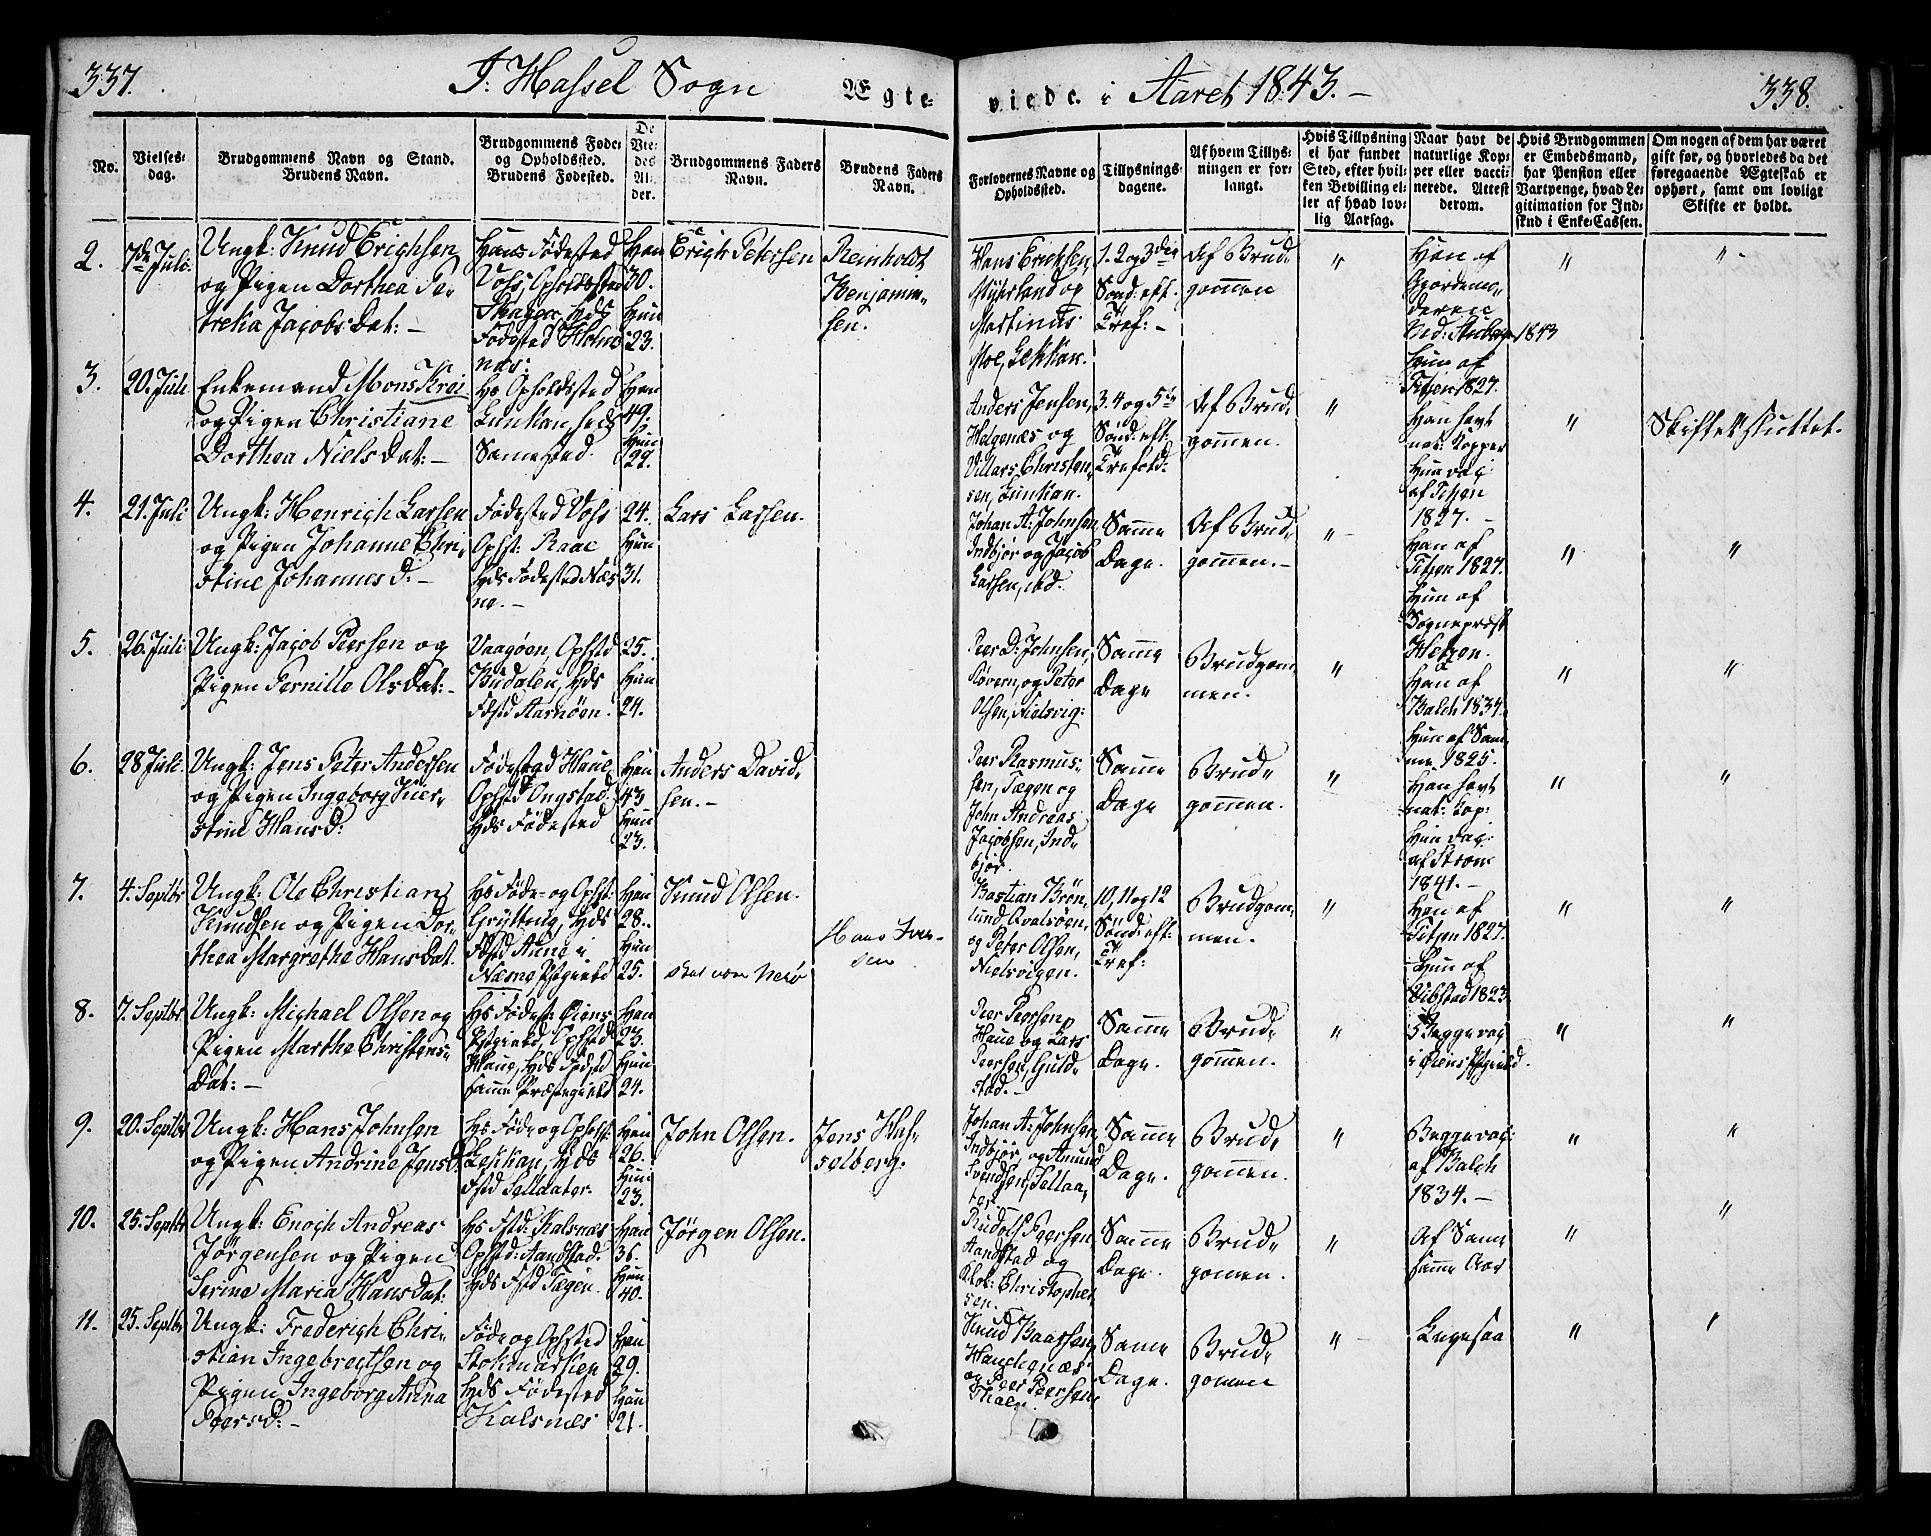 337.
I. Hassel Sogn
Ægte-
viede. i Aaret 1843.
338.
No.
Vielses-
dag.
Brudgommens Navn og Stand.
Brudens Navn.
Brudgommens Føde-
og Opholdssted.
Brudens Fødested.
De
Vie-
des
Al-
der.
Brudgommens Faders
Navn.
Brudens Faders
Navn.
Forlovernes Navne og
Opholdssted.
Tillysnings-
dagene.
Af hvem Tillys-
ningen er for-
langt.
Hvis Tillysning
ei har fundet
Sted, efter hvil-
ken Bevilling el-
ler af hvad lov-
lig Aarsag.
Naar havt de
naturlige Kop-
per eller vacci-
nerede. Attest
derom.
Hvis Brudgommen
er Embedsmand,
har Pension eller
Vartpenge, hvad Le-
gitimation for Ind-
skud i Enke-Cassen.
Om nogen af dem har været
gift før, og hvorledes da det
foregaaende Ægteskab er
ophørt, samt om lovligt
Skifte er holdt.
2.
7de Juli
Ungk: Knud Erichsen
og Pigen Dorthea Pe-
trelia Jacobs Dat:
Hans Fødested
Vols, Opholdssted
Skagen, Hds
Fødested Holm-
næs:
Han
30.
Hun
23.
Erich Petersen
Reinholdt
Benjamin-
sen.
Hans Eriksen,
og
Martinus
Moe, Gekkan.
1. 2 og 3die
Sønd: eft.
Tref:
Af Brud-
gommen
"
Han af
Gjordemo-
deren
1843
Hun af
Titzen 1827.
"
"
3.
20. Juli
Enkemand Mons Krei
og Pigen Christiane
Dorthea Niels Dat:
Hs Opholdssted
Lunkan, Hds
Sammested.
Han
49.
Hun
22.
Anders Jensen,
Holgenæs og
Villars Christen-
sen, Lunkan.
3. 4 og 5te
Sønd: eft:
Trefold:
Af Brud-
gommen.
"
Han havt
nat: Kopper
Hun vac:
af Titzen
1827.
"
Skiftet sluttet.
4.
21. Juli
Ungk: Henrich Larsen
og Pigen Johanne Chri-
stine Johannes D:
Fødested Vols
Ophst: Raae
Hds Fødested Næs
ne.
24.
Hun
31.
Lars Larsen.
Johan A: Johnsen
Indbjør og Jacob
Larsen, ibd.
Samme
Dage.
Af Brud-
gommen.
"
Han af
Titzen 1827.
Hun af
Sognepræst
Hetzen.
"
"
5.
26. Juli
Ungk: Jacob Peersen og
Pigen Pernille Ols Dat:
Vaagøen, Ophstd
Budalen, Hds
Fdstd Aarnøen.
25.
Hun
24.
Peer D: Johnsen,
og Peter
Olsen, Nielsvig:
Samme
Dage
Brudgom-
men.
"
Han af
Balch 1834.
Hun af Sam-
me 1825.
"
"
6.
28 Juli
Ungk: Jens Peter Andersen
og Pigen Ingeborg Kier-
stine Hans D:
Fødested Haue
Ophstd Ongstad
Hds Fødested
Han
43
Hun
23.
Anders David-
sen.
Peer Rasmus-
sen, Tægen og
John Andreas
Jacobsen, Ind-
bjør.
Samme
Dage
Brud-
gommen.
"
Han havt
nat: Kop:
Hun vac:
af Strøm
1841.
"
"
7.
4. Septbr
Ungk: Ole Christian
Knudsen og Pigen Dor-
thea Margrethe Hans Dat.
Hs Føde- og Ophst:
Grytting, Hds
Fdstd Anne i
Næsne Pstgield
Han
28.
Hun
25.
Knud Olsen.
skal være Nerø
Hans Iver-
sen
Bastian Brøn-
lund, Qvalsøen,
og Peter Olsen,
Nielsvigen.
10, 11 og 12
Sønd: eft:
Tref:
Brudgom-
men.
"
Han af
Titzen 1827.
Hun af
Vibstad 1823
"
"
8.
7. Septbr
Ungk: Michael Olsen og
Pigen Marthe Christens-
Dat:
Hs Fødest: Øiens
Pstgield, Ophstd
Haue, Hds Fdstd
samme Præstegield
Han
23.
Hun
24.
Peer Peersen,
Haue og Lars
Peersen, Guld-
stad.
Samme
Dage.
Brud-
gommen.
"
Begge vac
i Øiens Pstgield.
"
"
9.
20. Septbr
Ungk: Hans Johnsen
og Pigen Andrine Jens D.
Hs Føde og Ophst:
Lekkan, Hds
Fstd Sellaater.
Han
26.
Hun
23.
John Olsen.
Jens Has-
selberg.
Johan A: Johnsen,
Indbjør, og Amund
Svendsen, Sellaa-
ter.
Samme
Dage.
Brud-
gommen.
"
Begge vac:
af Balch
1834.
"
"
10.
25. Septbr
Ungk: Enoch Andreas
Jørgensen og Pigen
Serine Maria Hans Dat:
Hs Fstd: Kalsnæs
Ophstd: Sandstad.
Hds Fstd Tægen.
Han
36.
Hun
40.
Jørgen Olsen.
Rudolf Peersen,
Sandstad og
Christopher
sen.
Samme
Dage.
Brud-
gomen.
"
Af Sam
samme Aar
"
"
11.
25. Septbr
Ungk: Frederich Chri-
stian Ingebregtsen og
Pigen Ingeborg Anna
Peers D:
Føde og Ophsted
Stokmarken
Hds Fødested
Kalsnæs
Han
29.
Hun
21.
Knud Baarsen,
Haukenæs
og Peer Peersen,
Samme
Dage.
Brud-
gomen
"
Ligesaa
"
"